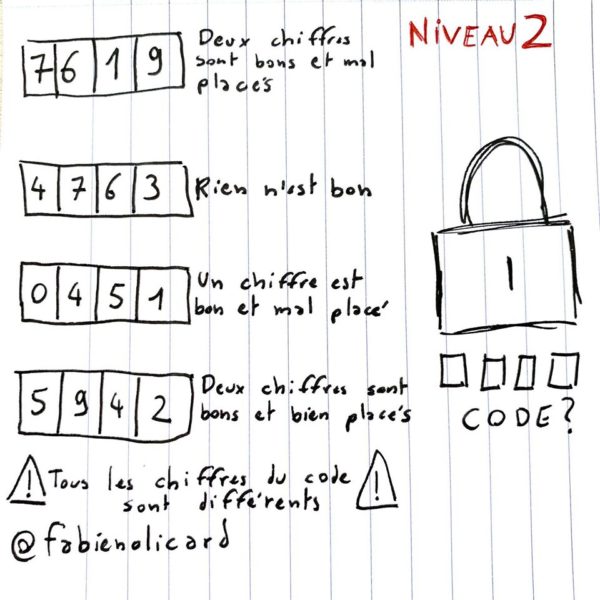 NIVEAU 2
7 6 1 9
Deux chiffres
sont bons et mal
placés
4 7 6 3
Rien n'est bon
0 4 5 1
Un chiffre est
bon et mal placé
5 9 4 2
Deux chiffres sont
bons et bien placés
CODE?
! Tous les chiffres du code !
sont différents
@fabienolicard